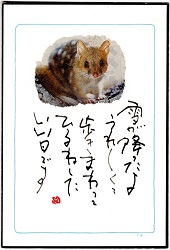 雪が降ったよ
うれしくて
歩きまわって
ひるねした
いい日です